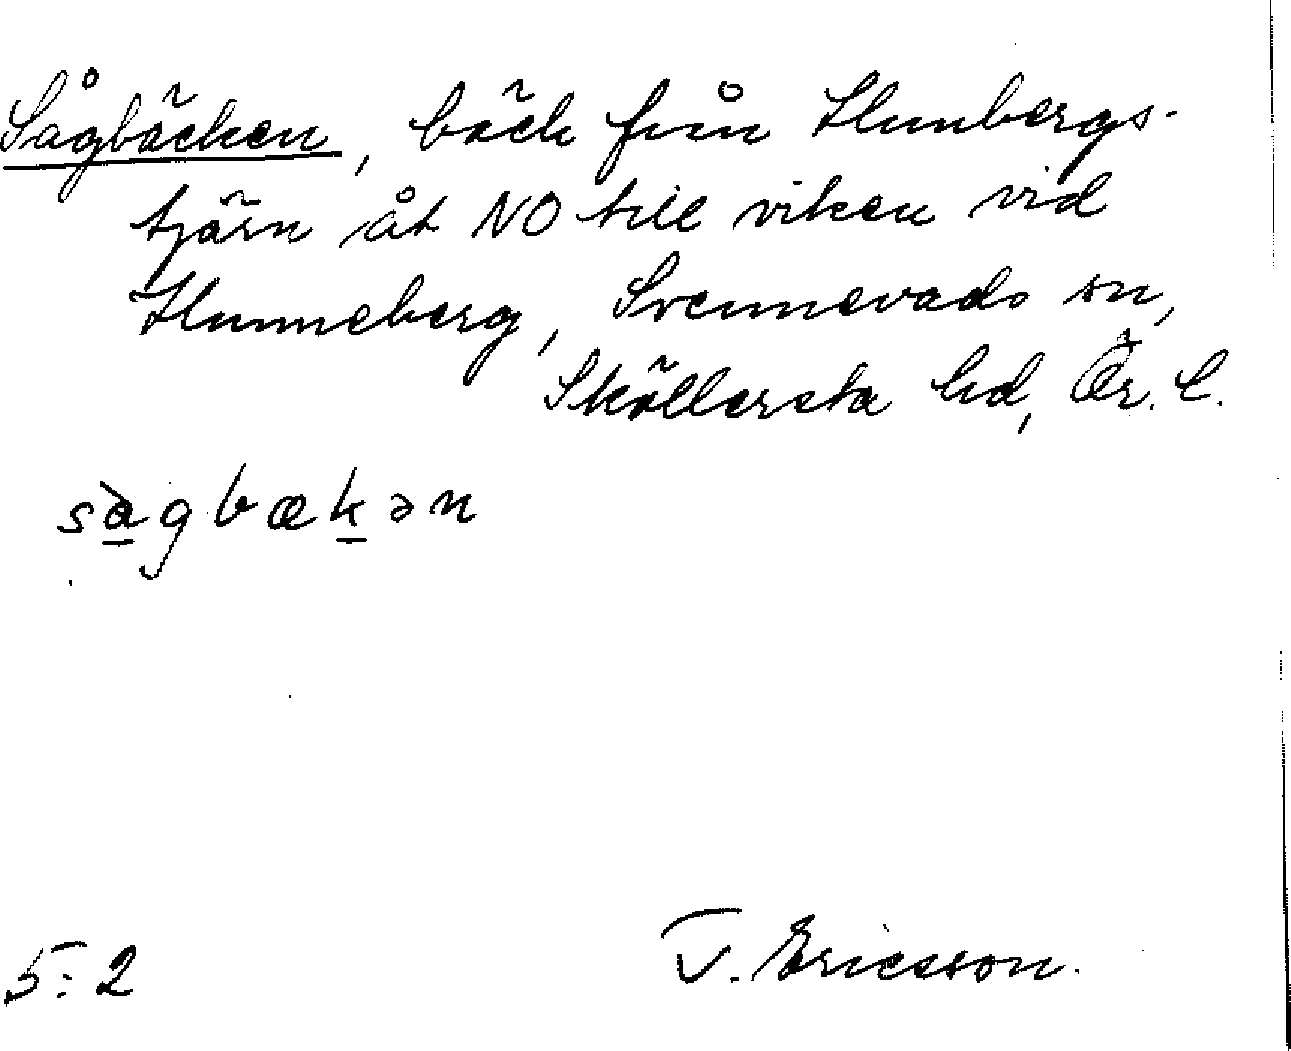 Sågbäcken, bäck från Hunbergs-
tjärn åt NO till viken vid
Hunneberg, Svennevads sn,
Sköllersta hd, Ör. l.
sàgbækən
5:2
T. Ericsson.